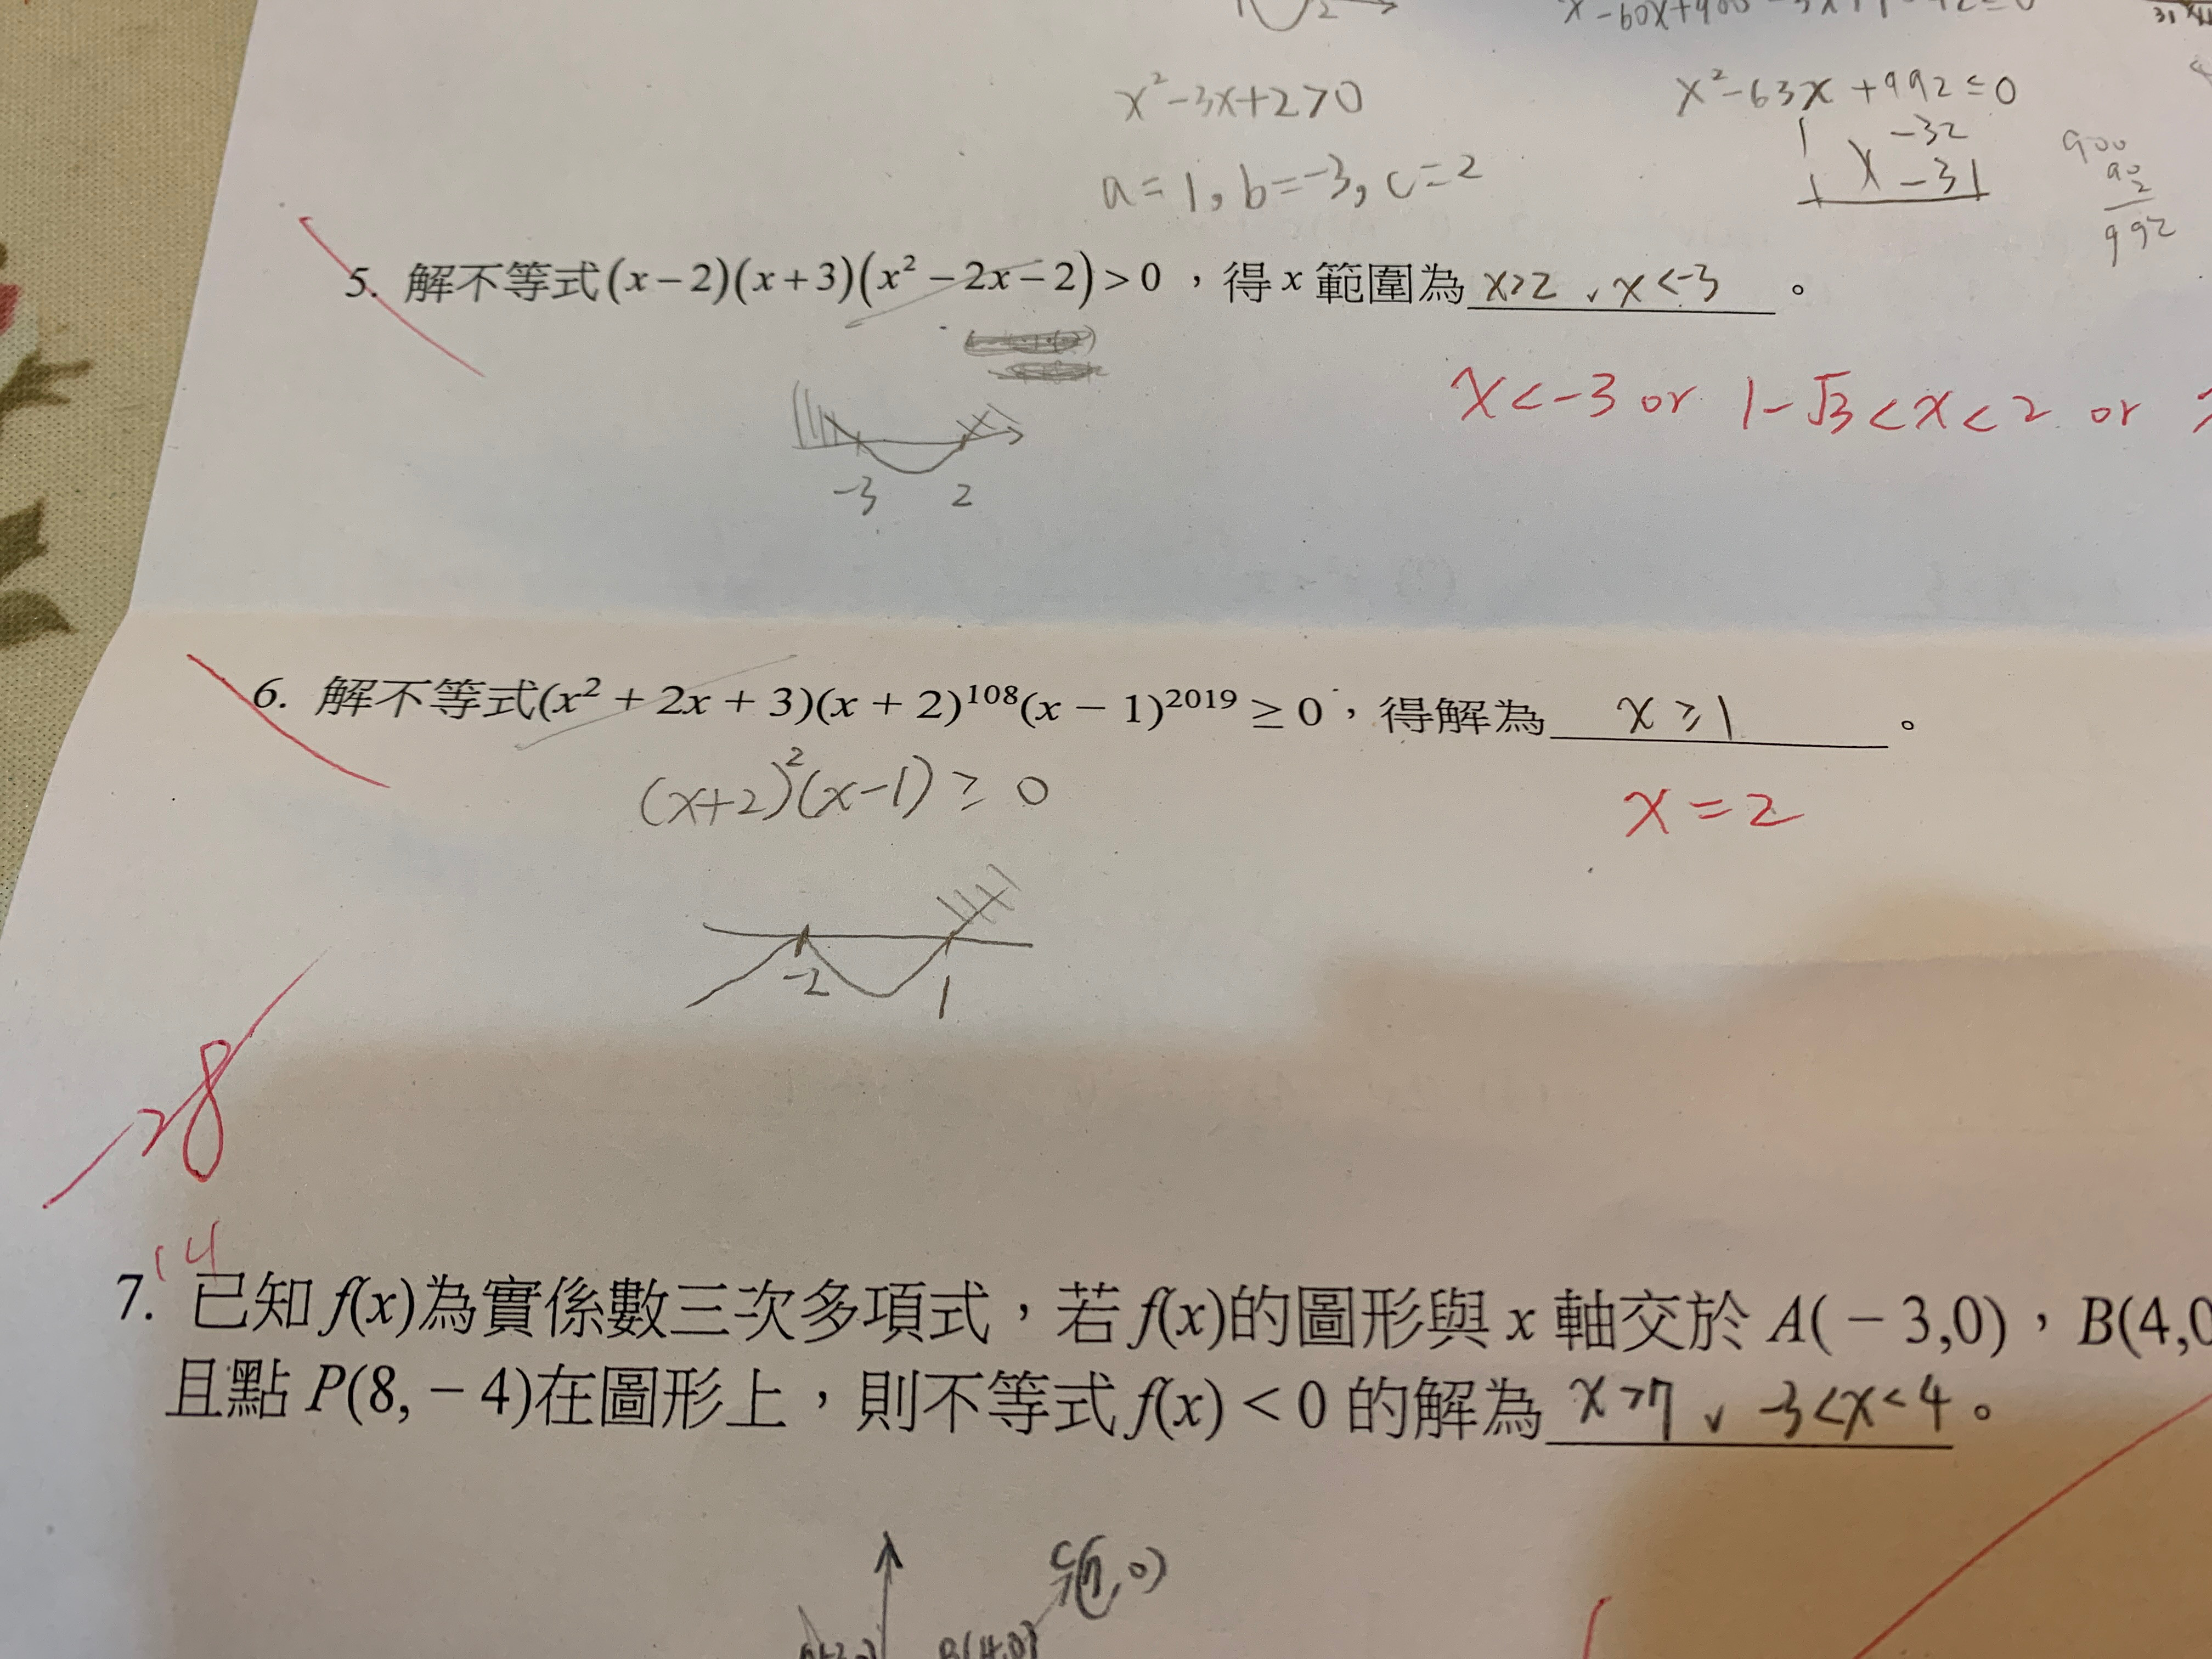 x²-3x+2>0
x²-63x+992≤0
1 -32
1 -31
900
90
2
992
a=1, b=-3, c=2
5. 解不等式(x-2)(x+3)(x²-2x-2)>0,得x範圍為 x>2 ∨ x<-3 。
x<-3 or 1-√3<x<2 or
-3 2
6. 解不等式(x²+2x+3)(x+2)¹⁰⁸(x-1)²⁰¹⁹≥0,得解為 x≥1 。
(x+2)²(x-1)≥0
x=2
-2 1
-28
14
7. 已知f(x)為實係數三次多項式,若f(x)的圖形與x軸交於A(-3,0),B(4,0
且點P(8,-4)在圖形上,則不等式f(x)<0的解為 x>7 ∨ -3<x<4 。
C(7,0)
B(4,0)